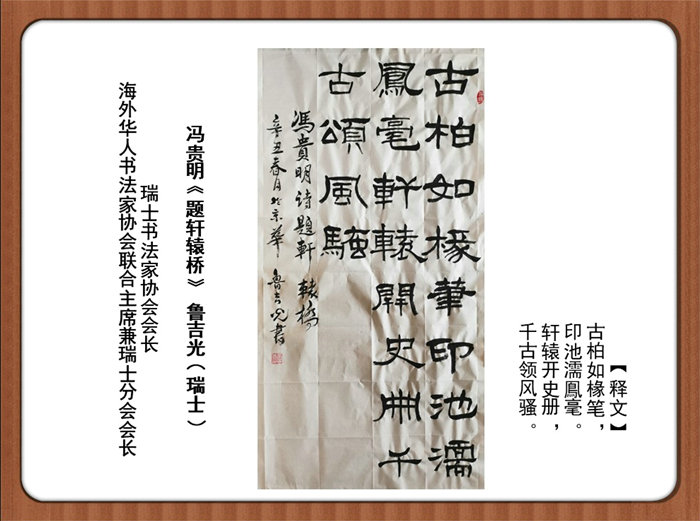 【释文】
古柏如椽笔，
印池濡鳯毫。
轩辕开史册，
千古领风骚。
古柏如椽筆印池濡
鳳毫軒轅開史冊千
古頌風騷
馮貴明诗題軒轅橋
辛丑春月於京華 魯吉光書
冯贵明《题轩辕桥》 鲁吉光（瑞士）
瑞士书法家协会会长
海外华人书法家协会联合主席兼瑞士分会会长